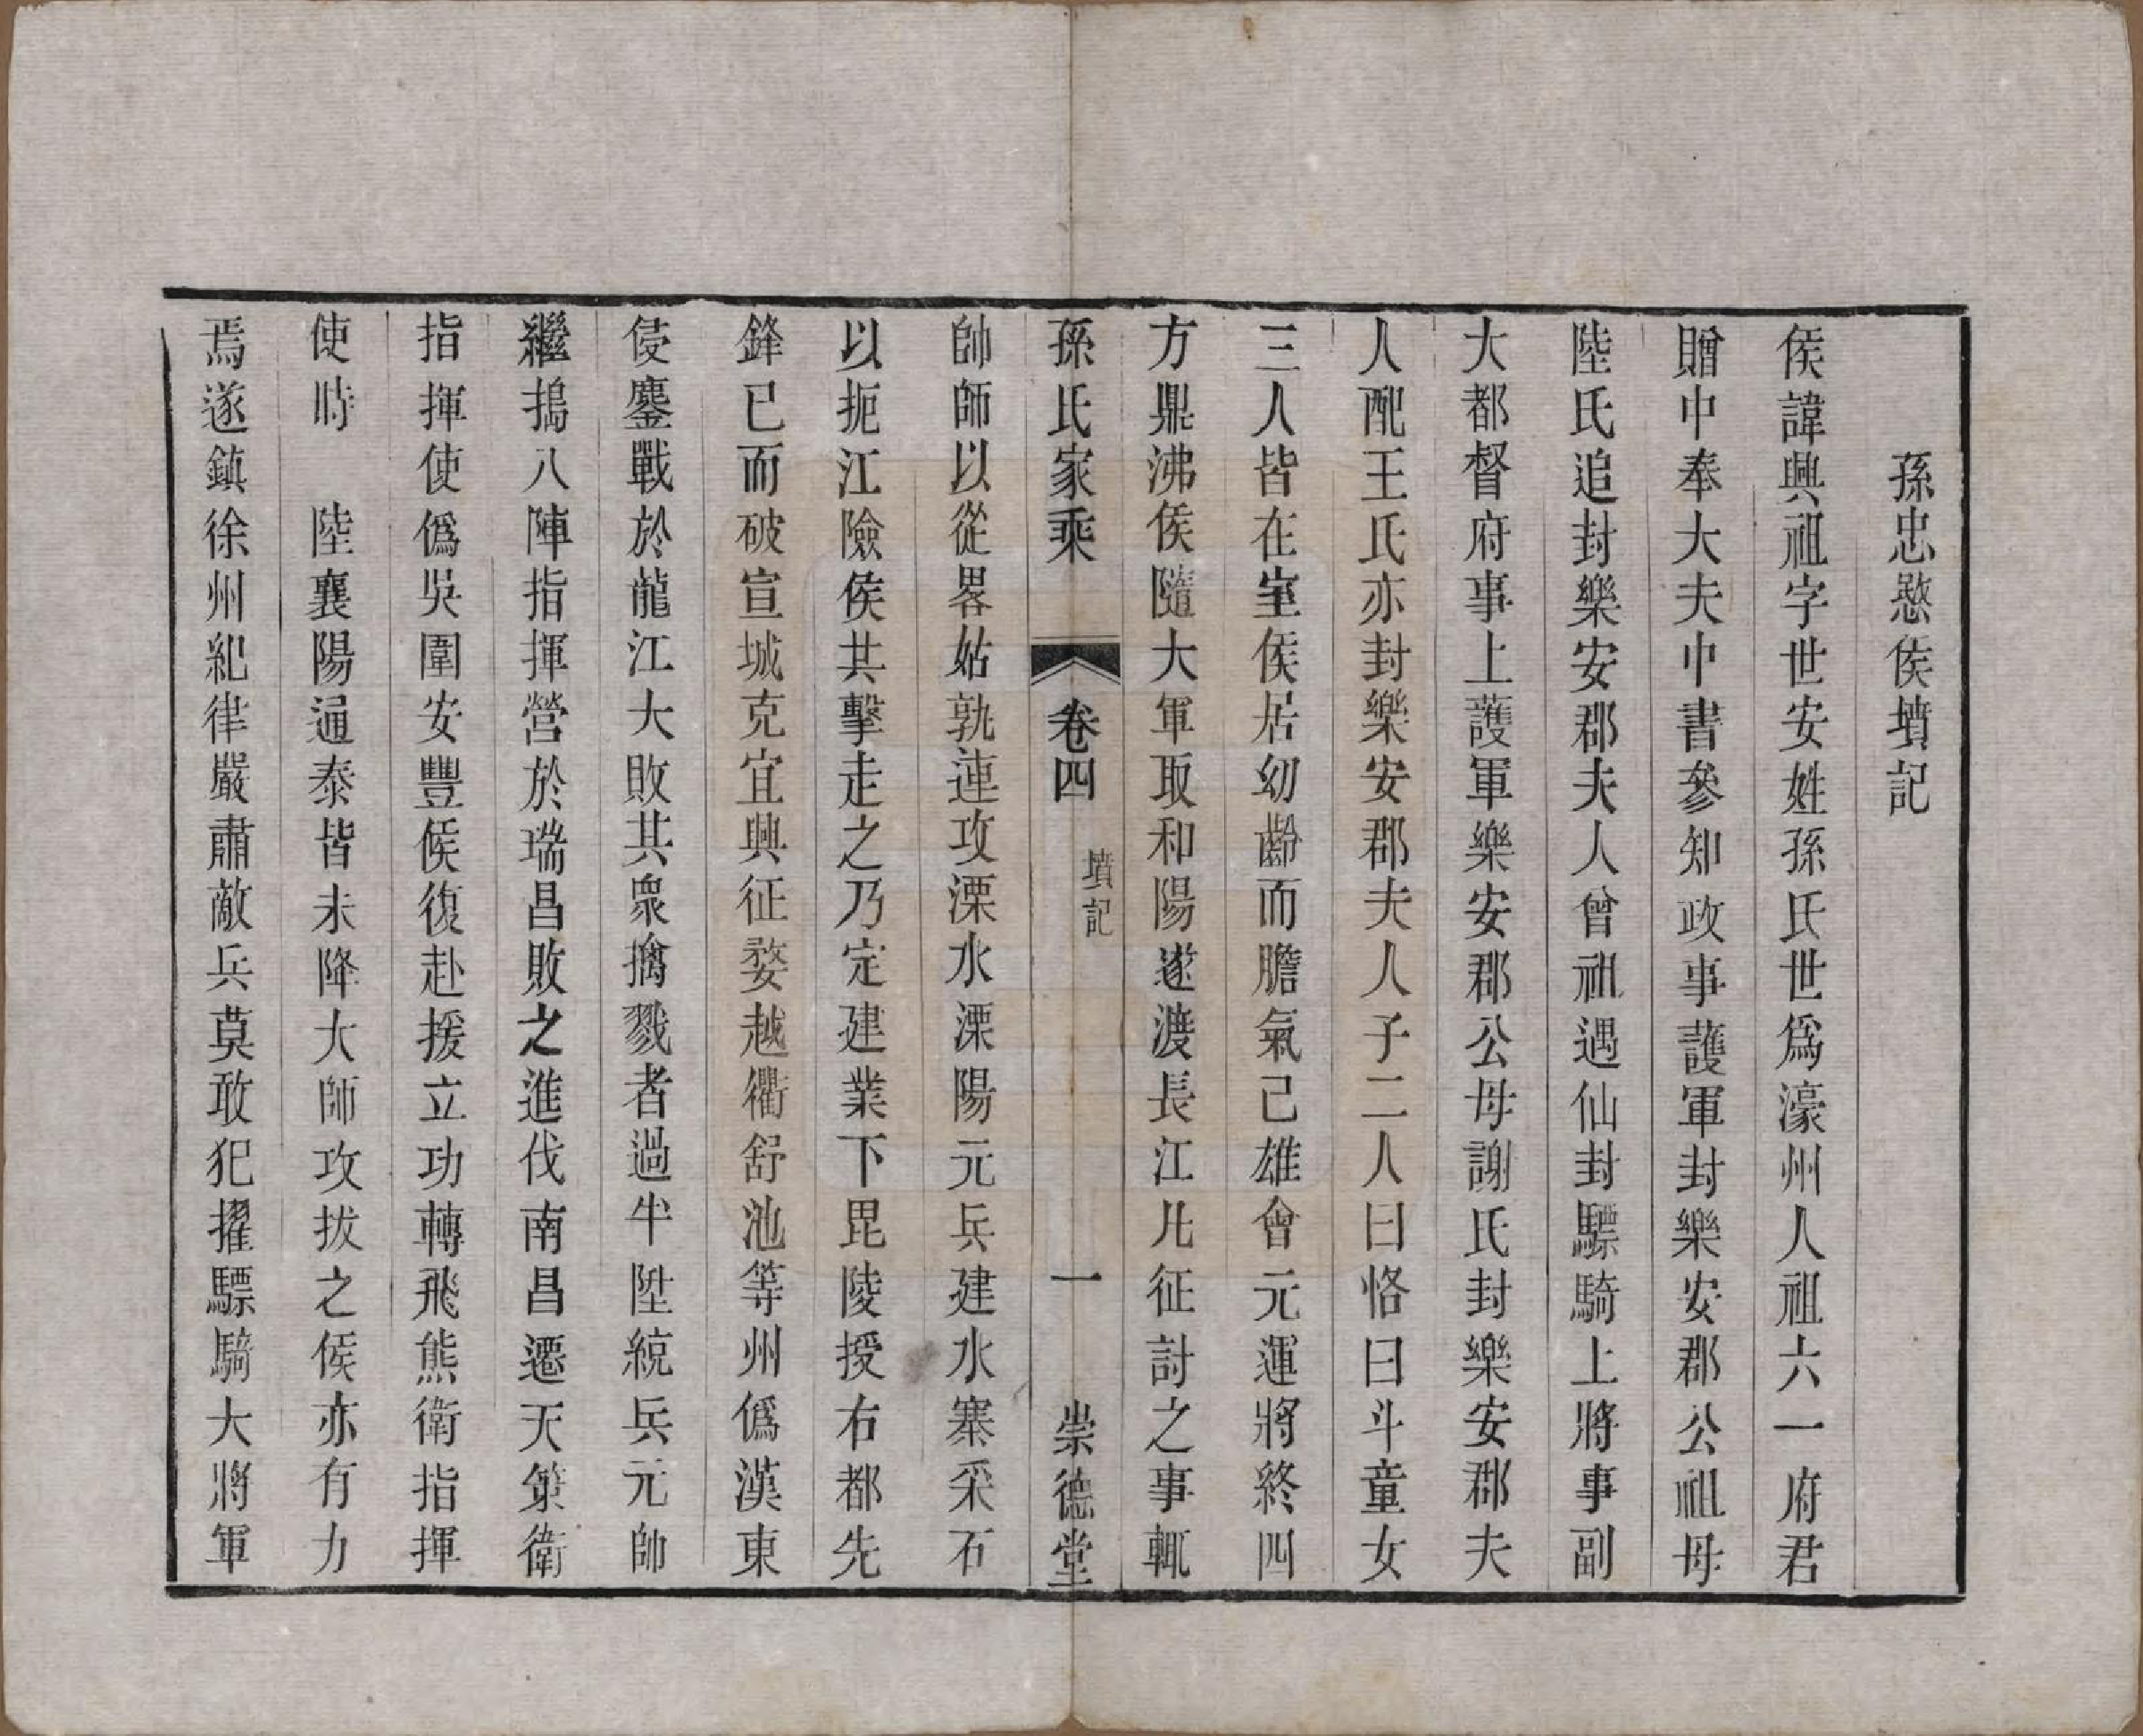 孫忠愍侯墳記
侯諱興祖字世安姓孫氏世爲濠州人祖六一府君
贈中奉大夫中書參知政事護軍封樂安郡公祖母
陸氏追封樂安郡夫人曾祖遇仙封驃騎上將事副
大都督府事上護軍樂安郡公母謝氏封樂安郡夫
人配王氏亦封樂安郡夫人子二人曰恪曰斗童女
三人皆在室侯居幼齡而膽氣已雄會元運將終四
方鼎沸侯隨大軍取和陽遂渡長江凡征討之事輒
孫氏家乘 卷四 墳記 一 崇德堂
帥師以從畧姑孰連攻溧水溧陽元兵建水寨采石
以扼江險侯共擊走之乃定建業下毘陵授右都先
鋒已而破宣城克宜興征婺越衢舒池等州僞漢東
侵鏖戰於龍江大敗其衆擒戮者過半陞統兵元帥
繼搗八陣指揮營於瑞昌敗之進伐南昌遷天策衛
指揮使僞吳圍安豐侯復赴援立功轉飛熊衛指揮
使時　陸襄陽通泰皆未降大師攻拔之侯亦有力
焉遂鎮徐州紀律嚴肅敵兵莫敢犯擢驃騎大將軍